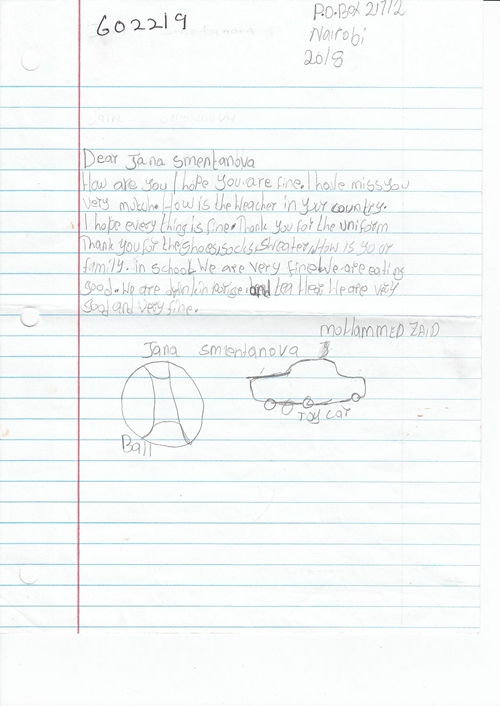 602219
P.O.Box 21712
Nairobi
2018
Dear Jana smentanova
How are you I hope you are fine. I have miss you
very mutch. How is the Weacher in your country.
I hope every thing is fine. Thank you for the uniform
Thank you for the shoes, socks, Sweater, How is yo or
family. in school We are very fine We are eating
good. We are drinkin porige and tea Hear We are very
good and very fine.
MOHAMMED ZAID
Jana smentanova
Ball
Toy car